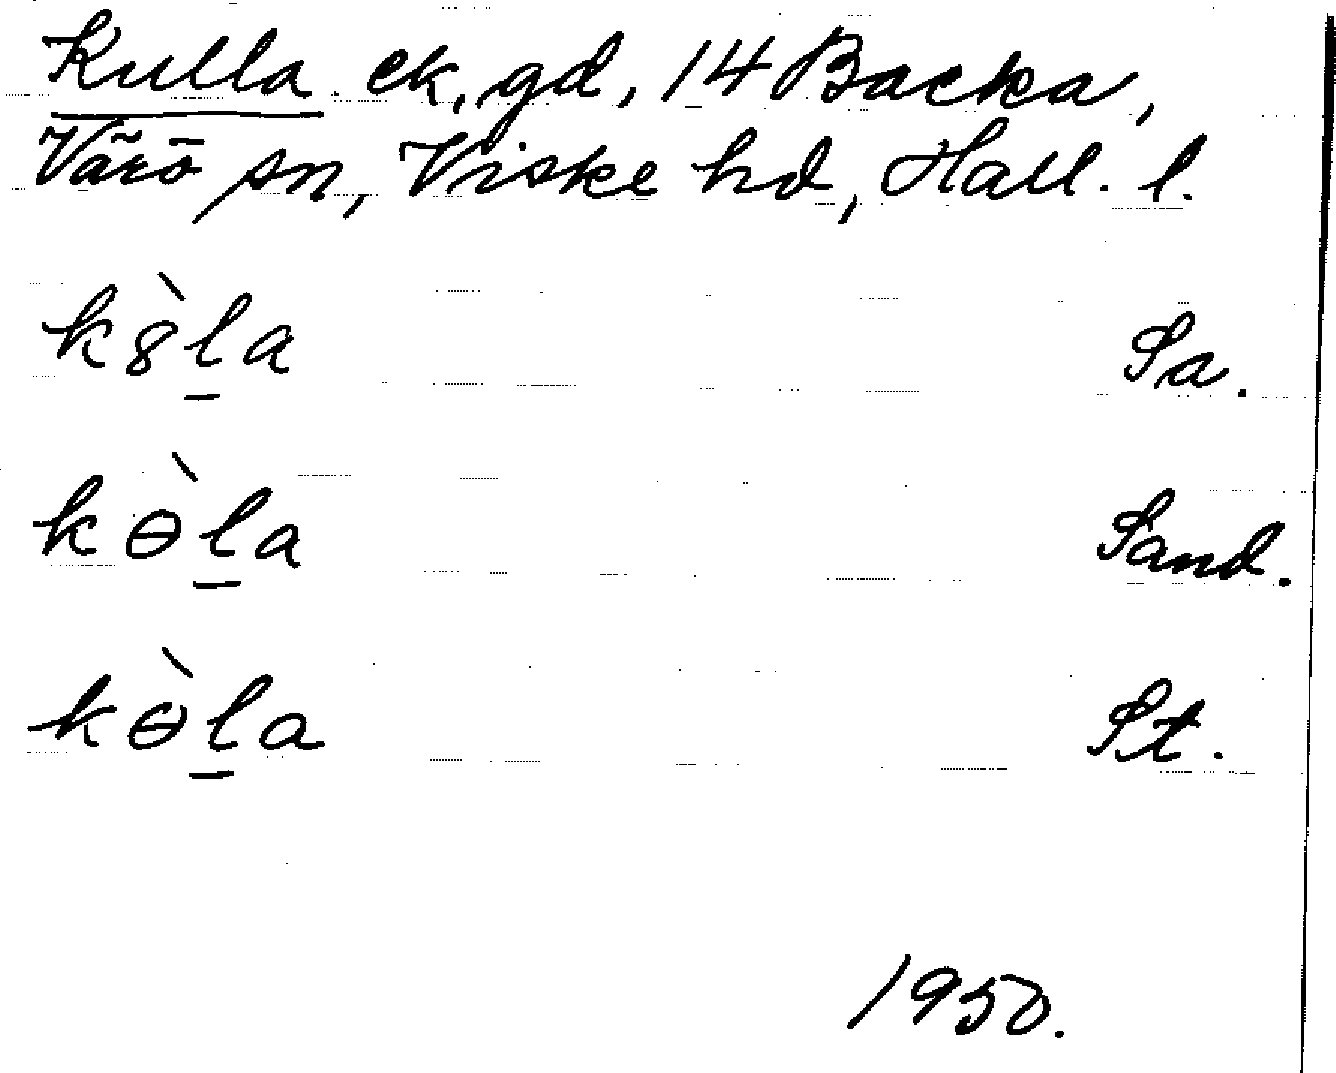 Kulla ek, gd, 14 Backa,
Värö sn, Viske hd, Hall. l.
k8̀l̠a Sa.
kɵ̀l̠a Sand.
kɵ̀l̠a St.
1950.